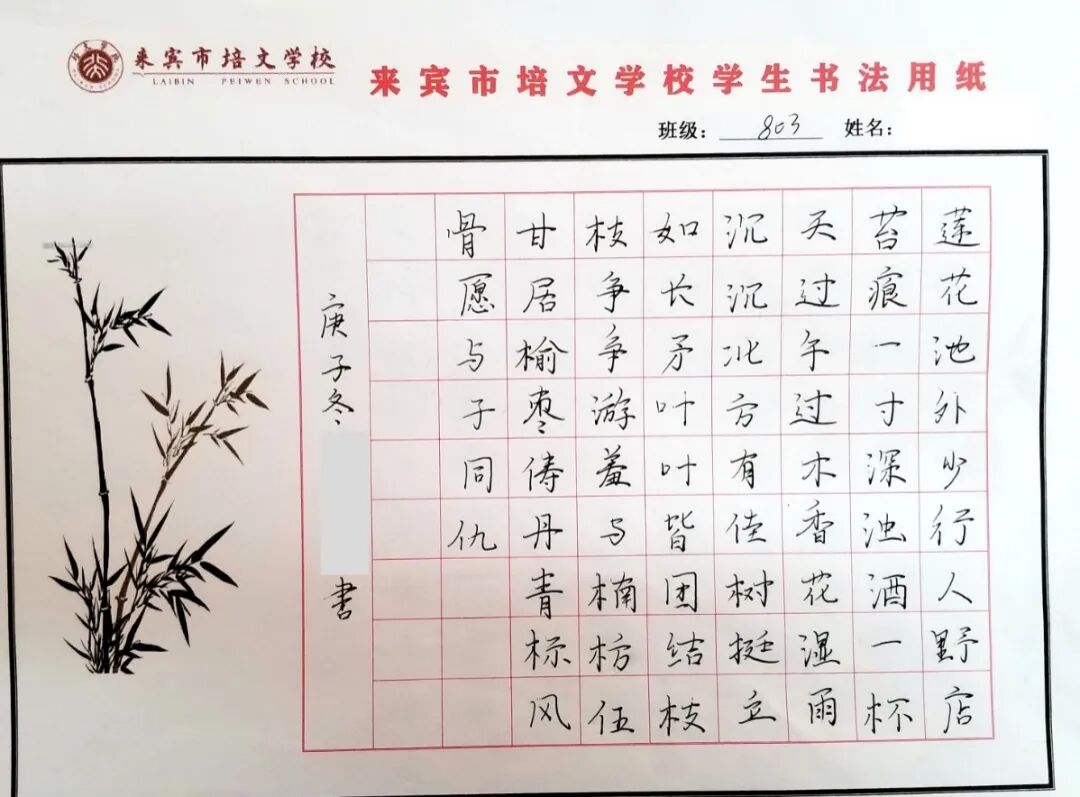 来宾市培文学校
LAIBIN PEIWEN SCHOOL
来宾市培文学校学生书法用纸
班级: 803 姓名:
莲花池外少行人野店
苔痕一寸深浊酒一杯
天过午过木香花湿雨
沉沉北方有佳树挺立
如长矛叶叶皆团结枝
枝争争游羞与楠枋伍
甘居榆枣俦丹青标风
骨愿与子同仇
庚子冬、書